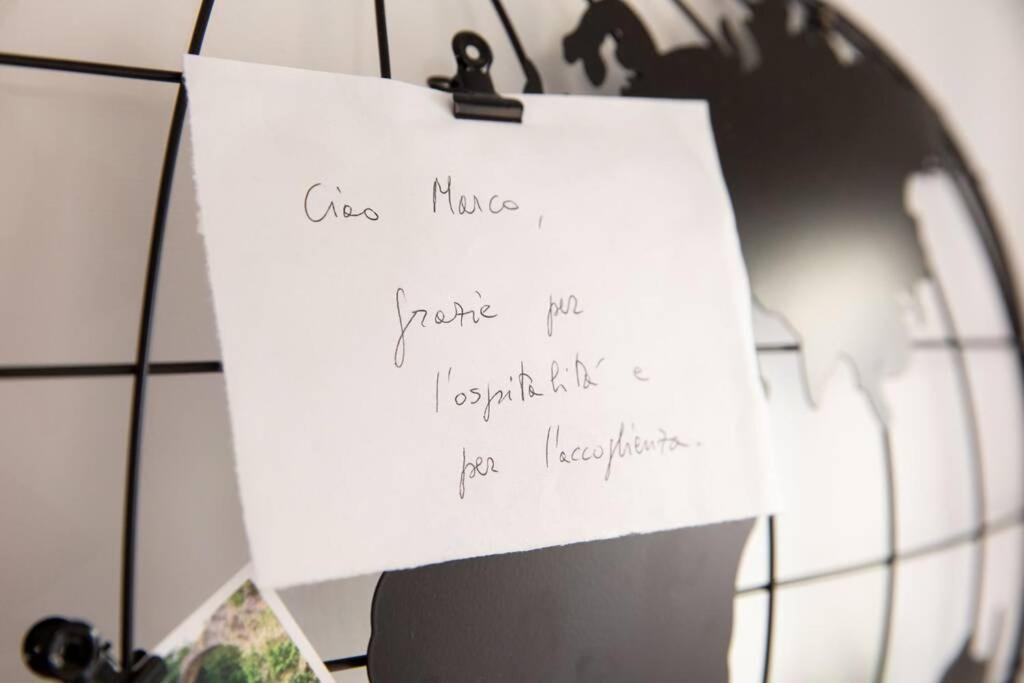 Ciao Marco,
grazie per
l'ospitalità e
per l'accoglienza.